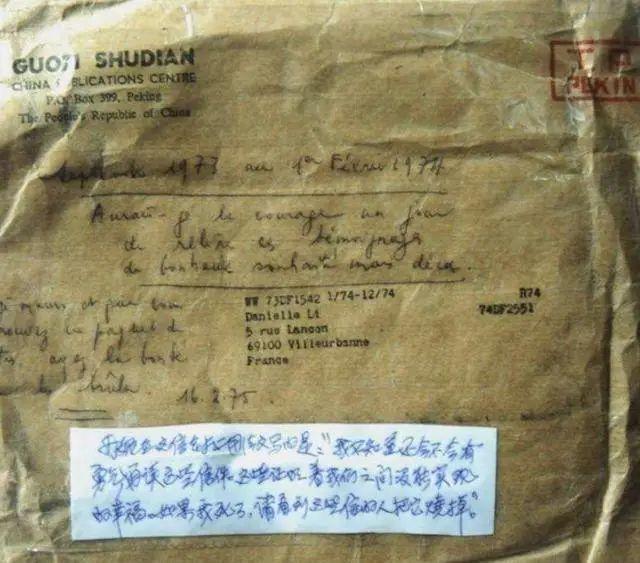 GUOZI SHUDIAN
CHINA PUBLICATIONS CENTRE
P.O. Box 399, Peking
The People's Republic of China
PEKIN
Septembre 1973 au 1er Février 1974
Aurai-je le courage un jour
de relire ces témoignages
de bonheur souhaité mais déçu.
WW 73DF1542 1/74-12/74 R74
Danielle Li 74DF2551
5 rue Lancon
69100 Villeurbanne
France
je meurs et que vous
trouvez ce paquet de
ayez la bonté
de les brûler.
16.2.75
我妈在这信封上用法文写的是:“我不知道还会不会有
勇气再读这些信件。这些证明着我们之间没能实现
的幸福。如果我死了,请看到这些信的人把它烧掉。”